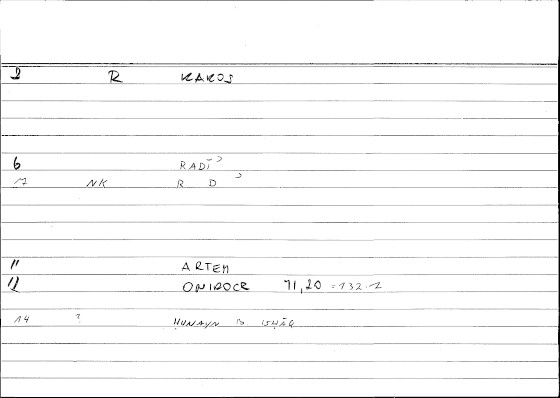 2 R KAKOS
6 RADĪ
17 NK R D
11 ARTEM
12 ONIROCR 71,20 = 132.1
14 ? ḤUNAYN B ISḤĀQ